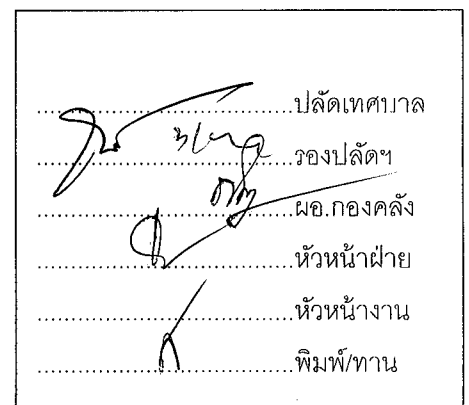 ....................ปลัดเทศบาล
....................รองปลัดฯ
....................ผอ.กองคลัง
....................หัวหน้าฝ่าย
....................หัวหน้างาน
....................พิมพ์/ทาน